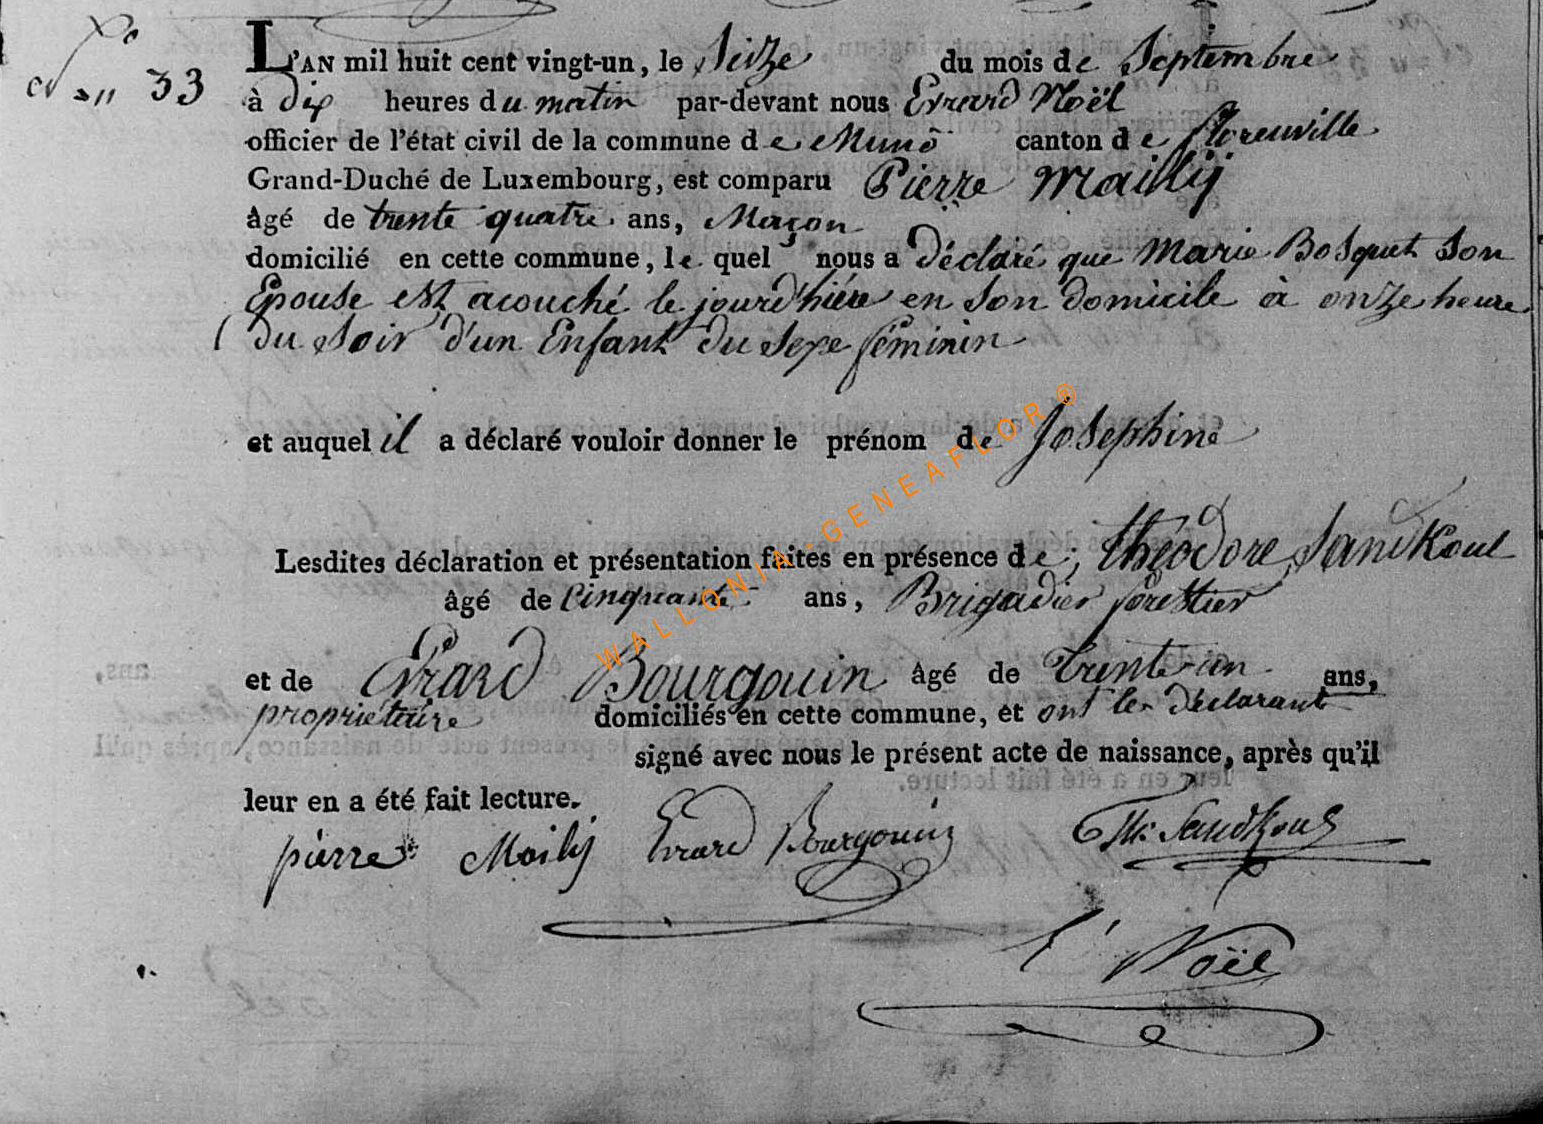 N.o 33
L'AN mil huit cent vingt-un, le Seize du mois de Septembre
à dix heures du matin par-devant nous Evrard Noël
officier de l'état civil de la commune de Muno canton de florenville
Grand-Duché de Luxembourg, est comparu Pierre Maillij
âgé de trente quatre ans, Maçon
domicilié en cette commune, le quel nous a déclaré que Marie Bosquet Son
Epouse est acouché le jourd'hière en Son domicile à onze heure
du Soir d'un Enfant du Sexe féminin
et auquel il a déclaré vouloir donner le prénom de Josephine
Lesdites déclaration et présentation faites en présence de; théodore Sandkoul
âgé de Cinquante ans, Brigadier forestier
et de Evrard Bourgouin âgé de Trente-un ans,
proprietaire domiciliés en cette commune, et ont les déclarant
signé avec nous le présent acte de naissance, après qu'il
leur en a été fait lecture.
pierre Moilij Evrard Bourgouin Th: Sandkoul
E Noël
WALLONIA-GENEAFLOR®